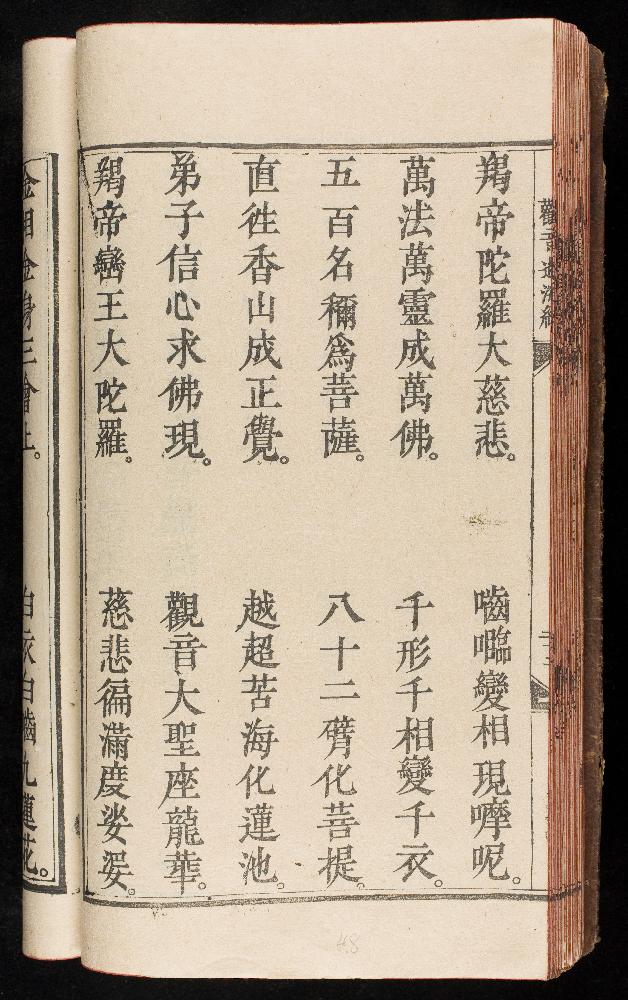 羯帝陀羅大慈悲。 嚙囓變相現嚤呢。
萬法萬靈成萬佛。 千形千相變千衣。
五百名稱爲菩薩。 八十二劈化菩提。
直徃香山成正覺。 越超苦海化蓮池。
弟子信心求佛現。 觀音大聖座龍華。
羯帝巒王大陀羅。 慈悲徧滿度娑婆。
金相金身三會上。 白衣白齒九蓮花。